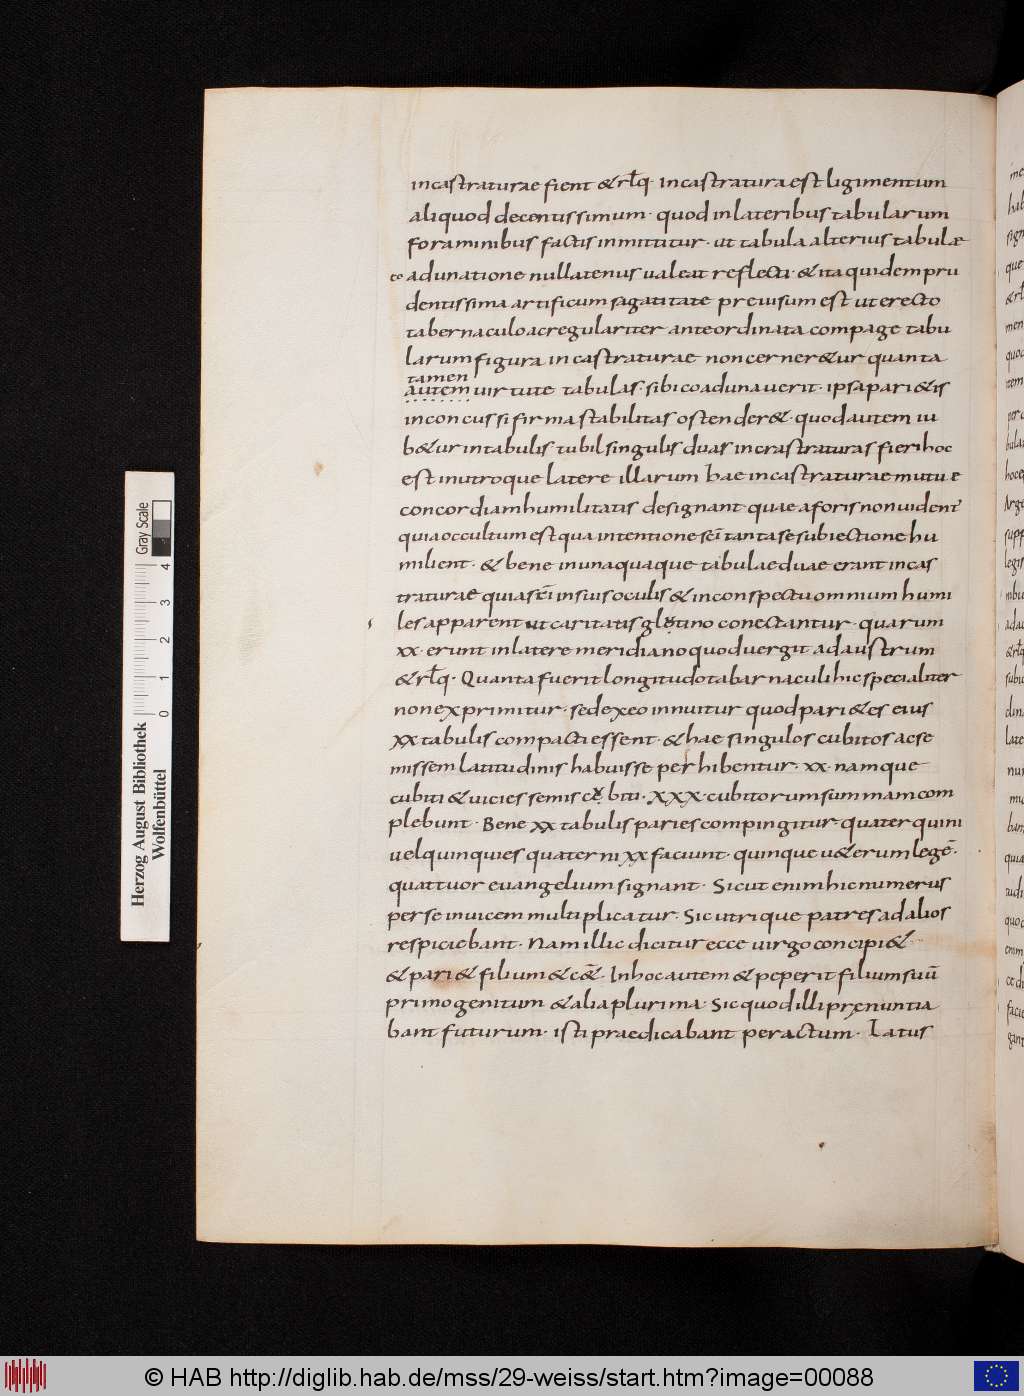 incastraturae fient & rl̄q· Incastratura est ligimentum
aliquod decentissimum· quod in lateribus tabularum
foraminibus factis inmittitur· ut tabula alterius tabulæ
co adunatione nullatenus ualeat reflecti· & ita quidem pru
dentissima artificum sagatitate preuisum est ut erecto
tabernaculo ac regulariter ante ordinata compage tabu
larum figura incastraturae non cerner&ur quanta
tamen
autem uirtute tabulas· sibi coadunauerit· ipsa pari&is
inconcussi firma stabilitas ostender&· quod autem iu
b&ur in tabulis tubil singulis duas incrastraturas fieri hoc
est in utroque latere illarum hae incastraturae mutue
concordiam humilitatis designant quae aforis non uident'
quia occultum est qua intentione sc̄i tanta se subiectione hu
milient· & bene in unaquaque tabulae duae erant incas
traturae quia sc̄i in suis oculis & in conspectu omnium humi
les apparent ut caritatis glutino conectantur· quarum
xx· erunt in latere meridiano quod uergit ad austrum
& rl̄q· Quanta fuerit longitudo tabarnaculi hic specialiter
non exprimitur· sed ex eo innuitur quod pari&es eius
xx tabulis compacti essent· & hae singulos cubitos ac se
missem latitudinis habuisse perhibentur· xx· namque
cubiti & uicies semis cubiti· xxx· cubitorum summam com
plebunt· Bene xx tabulis paries compingitur· quater quini
uel quinquies quaterni xx faciunt· quinque u&erum legē·
quattuor euangelium signant· Sicut enim hic numerus
per se inuicem multiplicatur· Sic utrique patres ad alios
respiciebant· Nam illic dicitur ecce uirgo concipi&
& pari& filium & c&̄· In hoc autem & peperit filium suū
primogenitum & alia plurima· Sic quod illi prenuntia
bant futurum· isti praedicabant peractum· Latus
Herzog August Bibliothek
Wolfenbüttel
0 1 2 3 4
Gray Scale
© HAB http://diglib.hab.de/mss/29-weiss/start.htm?image=00088